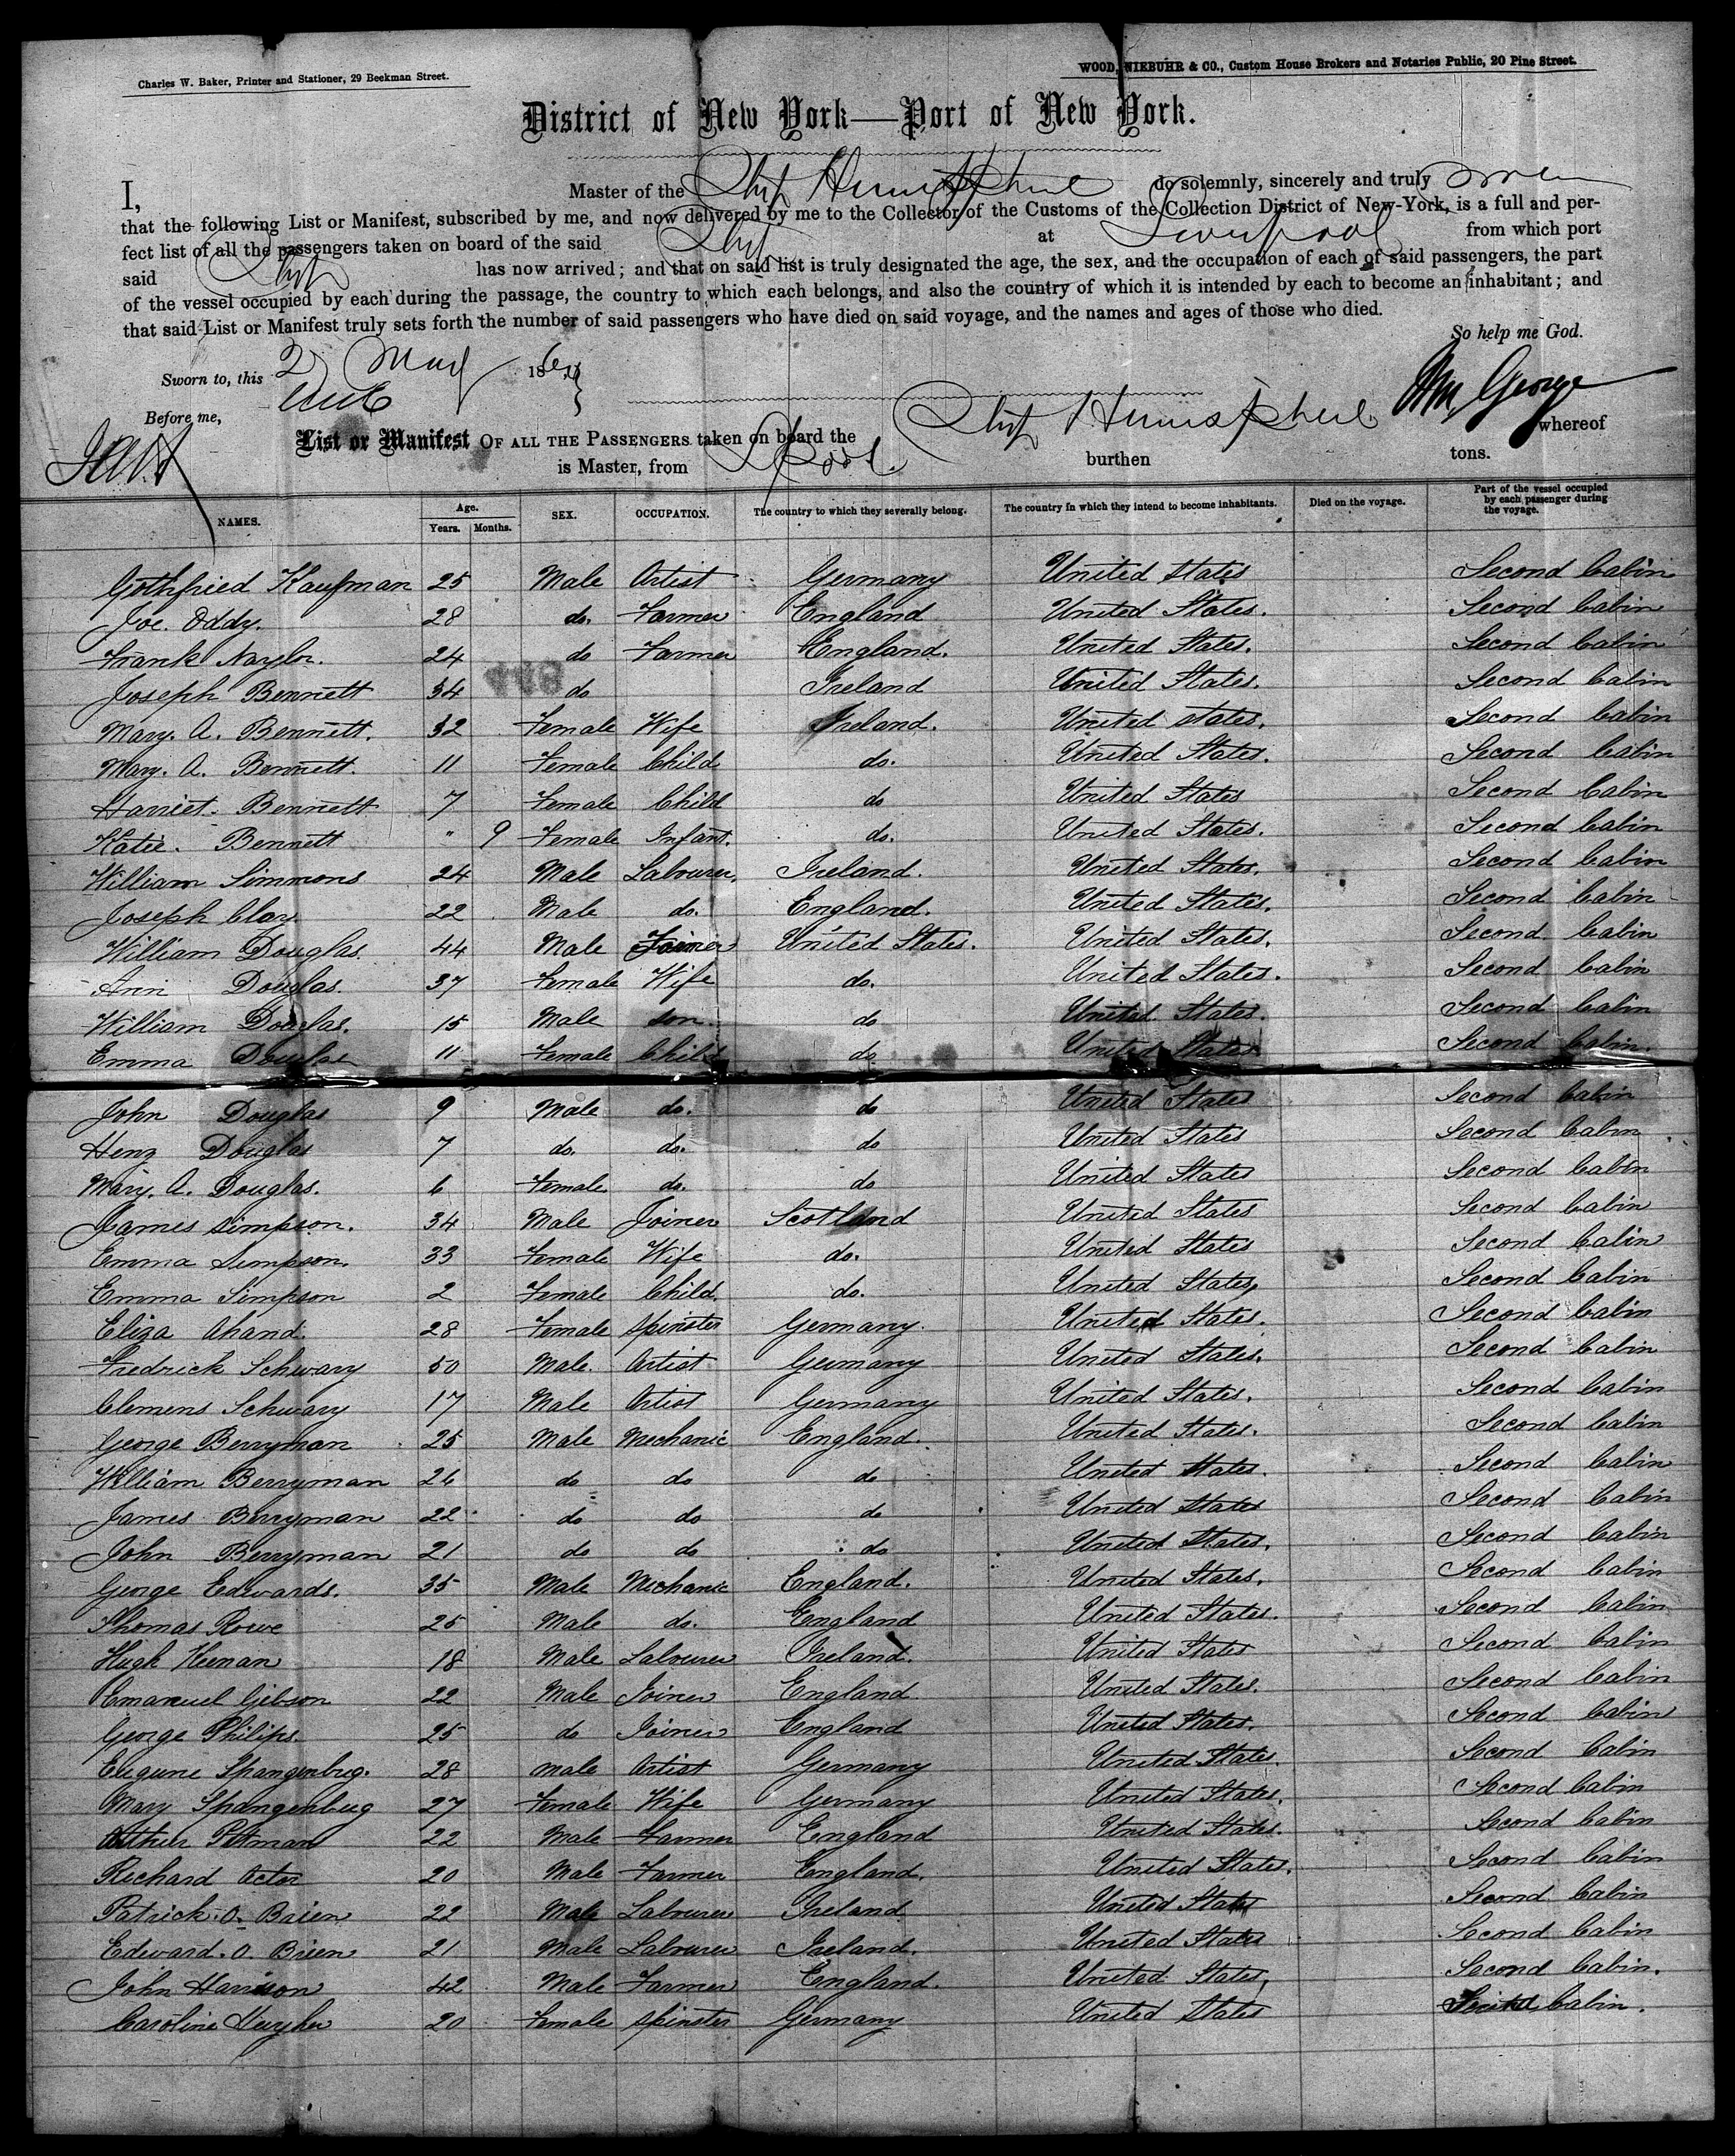 Charles W. Baker, Printer and Stationer, 29 Beekman Street.
WOOD, NIEBUHR & CO., Custom House Brokers and Notaries Public, 20 Pine Street.
District of New York—Port of New York.
I, Master of the Ship Hemisphere do solemnly, sincerely and truly swear
that the following List or Manifest, subscribed by me, and now delivered by me to the Collector of the Customs of the Collection District of New-York, is a full and per-
fect list of all the passengers taken on board of the said Ship at Liverpool from which port
said Ship has now arrived; and that on said list is truly designated the age, the sex, and the occupation of each of said passengers, the part
of the vessel occupied by each during the passage, the country to which each belongs, and also the country of which it is intended by each to become an inhabitant; and
that said List or Manifest truly sets forth the number of said passengers who have died on said voyage, and the names and ages of those who died.
So help me God.
Sworn to, this 2 May 186
Wm. George
Before me,
List or Manifest OF ALL THE PASSENGERS taken on board the Ship Hemisphere whereof
is Master, from LPool burthen tons.
NAMES. Age. Years. Months. SEX. OCCUPATION. The country to which they severally belong. The country in which they intend to become inhabitants. Died on the voyage. Part of the vessel occupied by each passenger during the voyage.
Gothfried Kaufman 25 Male Artist Germany United States Second Cabin
Joe. Oddy. 28 do. Farmer England United States. Second Cabin
Frank Naylor. 24 do Farmer England. United States. Second Cabin
Joseph Bennett 34 do Ireland United States. Second Cabin
Mary. A. Bennett. 32 Female Wife Ireland. United States. Second Cabin
Mary. A. Bennett. 11 Female Child do. United States. Second Cabin
Harriet. Bennett 7 Female Child do United States Second Cabin
Katie. Bennett " 9 Female Infant. do. United States. Second Cabin
William Simmons 24 Male Labourer, Ireland. United States. Second Cabin
Joseph Clay. 22 Male do. England. United States. Second Cabin
William Douglas. 44 Male Joiner United States. United States. Second Cabin
Ann Douglas. 37 Female Wife do. United States. Second Cabin
William Douglas. 15 Male son. do United States. Second Cabin
Emma Douglas 11 Female Child do United States Second Cabin.
John Douglas 9 Male do. do United States Second Cabin
Henry Douglas 7 do. do. do United States Second Cabin
Mary. A. Douglas. 6 Female do. do United States Second Cabin
James Simpson. 34 Male Joiner Scotland United States Second Cabin
Emma Simpson. 33 Female Wife do. United States Second Cabin
Emma Simpson 2 Female Child. do. United States, Second Cabin
Eliza 28 Female Spinster Germany. United States. Second Cabin
Fredrick Schwary 50 Male. Artist Germany United States. Second Cabin
Clemens Schwary 17 Male Artist Germany United States. Second Cabin
George Berryman 25 Male Mechanic England. United States. Second Cabin
William Berryman 26 do do do United States. Second Cabin
James Berryman 22 do do do United States Second Cabin
John Berryman 21 do do do United States. Second Cabin
George Edwards. 35 Male Mechanic England. United States. Second Cabin
Thomas Rowe 25 Male do. England United States. Second Cabin
Hugh Heenan 18 Male Labourer Ireland. United States Second Cabin
Emanuel Gibson 22 Male Joiner England. United States. Second Cabin
George Philips. 25 do Joiner England United States. Second Cabin
Eugune Spangenbug. 28 Male Artist Germany United States. Second Cabin
Mary Spangenbug 27 Female Wife Germany United States. Second Cabin
Arthur Pitman 22 Male Farmer England United States. Second Cabin
Richard Acter 20 Male Farmer England. United States. Second Cabin
Patrick. O. Brien 22 Male Labourer Ireland United States Second Cabin
Edward. O. Brien 21 Male Labourer Ireland. United States Second Cabin
John Harrison 42 Male Farmer England. United States, Second Cabin.
Caroline 20 Female Spinster Germany United States Second Cabin.